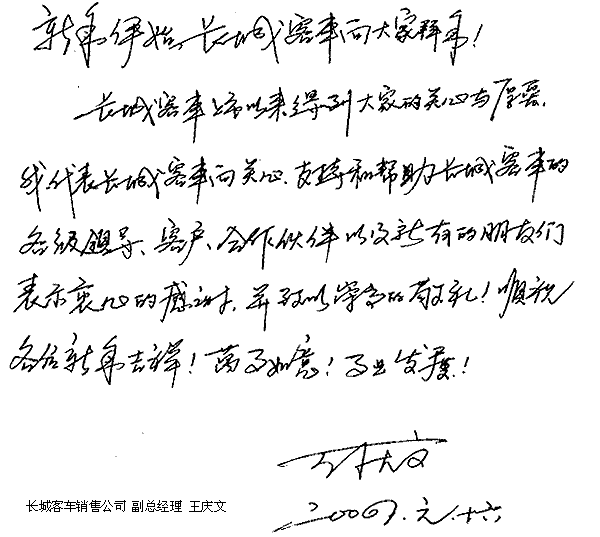 新年伊始,长城客车向大家拜年!
长城客车上市以来得到大家的关心与厚爱.
我代表长城客车向关心、支持和帮助长城客车的
各级领导、客户、合作伙伴以及新有的朋友们
表示衷心的感谢,并致以崇高的敬礼!顺祝
各位新年吉祥!万事如意!事业发展!
王庆文
元.十六
长城客车销售公司 副总经理 王庆文